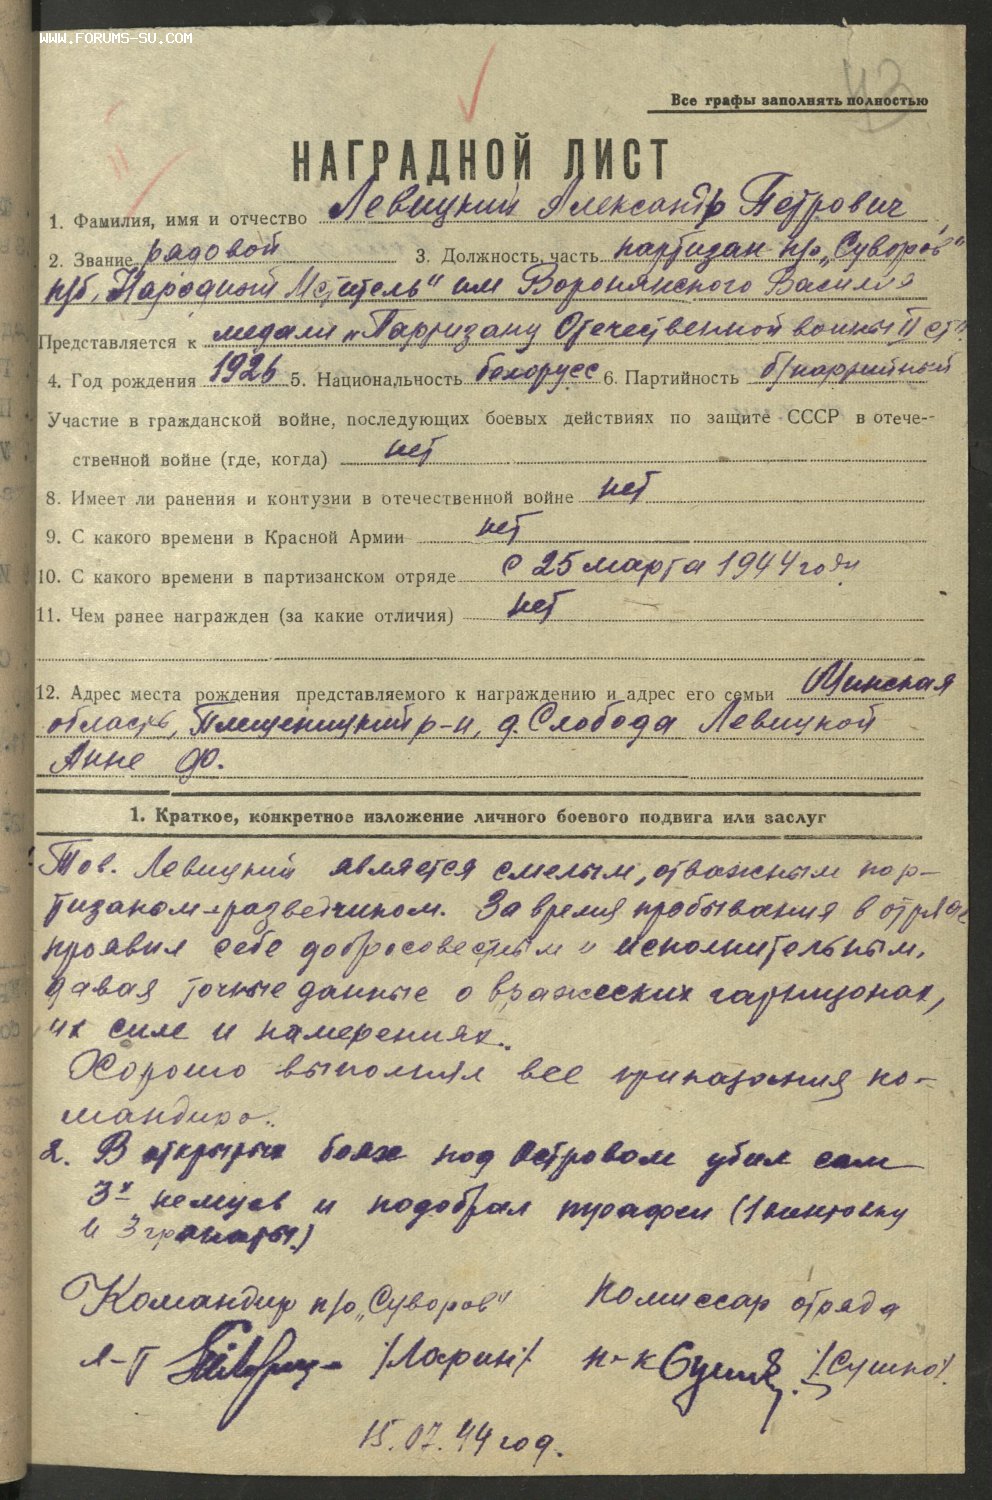 WWW.FORUMS-SU.COM
43
Все графы заполнять полностью
НАГРАДНОЙ ЛИСТ
1. Фамилия, имя и отчество Левицкий Александр Петрович
2. Звание рядовой 3. Должность, часть партизан п/о „Суворов"
п/б „Народный Мститель" им Воронянского Василия
Представляется к медали „Партизану Отечественной войны II ст"
4. Год рождения 1926 5. Национальность белорусс 6. Партийность б/партийный
Участие в гражданской войне, последующих боевых действиях по защите СССР в отече-
ственной войне (где, когда) нет
8. Имеет ли ранения и контузии в отечественной войне нет
9. С какого времени в Красной Армии нет
10. С какого времени в партизанском отряде с 25 марта 1944 года
11. Чем ранее награжден (за какие отличия) нет
12. Адрес места рождения представляемого к награждению и адрес его семьи Минская
область, Плещеницкий р-н, д. Слобода Левицкой
Анне Ф.
1. Краткое, конкретное изложение личного боевого подвига или заслуг
Тов. Левицкий является смелым, отважным пар-
тизаном-разведчиком. За время пробывания в отряде
проявил себе добросовестным и исполнительным,
давая точные данные о вражеских гарнизонах,
их силе и намерениях.
Хорошо выполнял все приказания ко-
мандира.
2. В открытых боях под Островом убил сам
3х немцев и подобрал трофеи (1 винтовку
и 3 гранаты)
Командир п/о „Суворов" Комиссар отряда
л-т /Ларин/ п-к /Сушко/.
15.07.44 год.